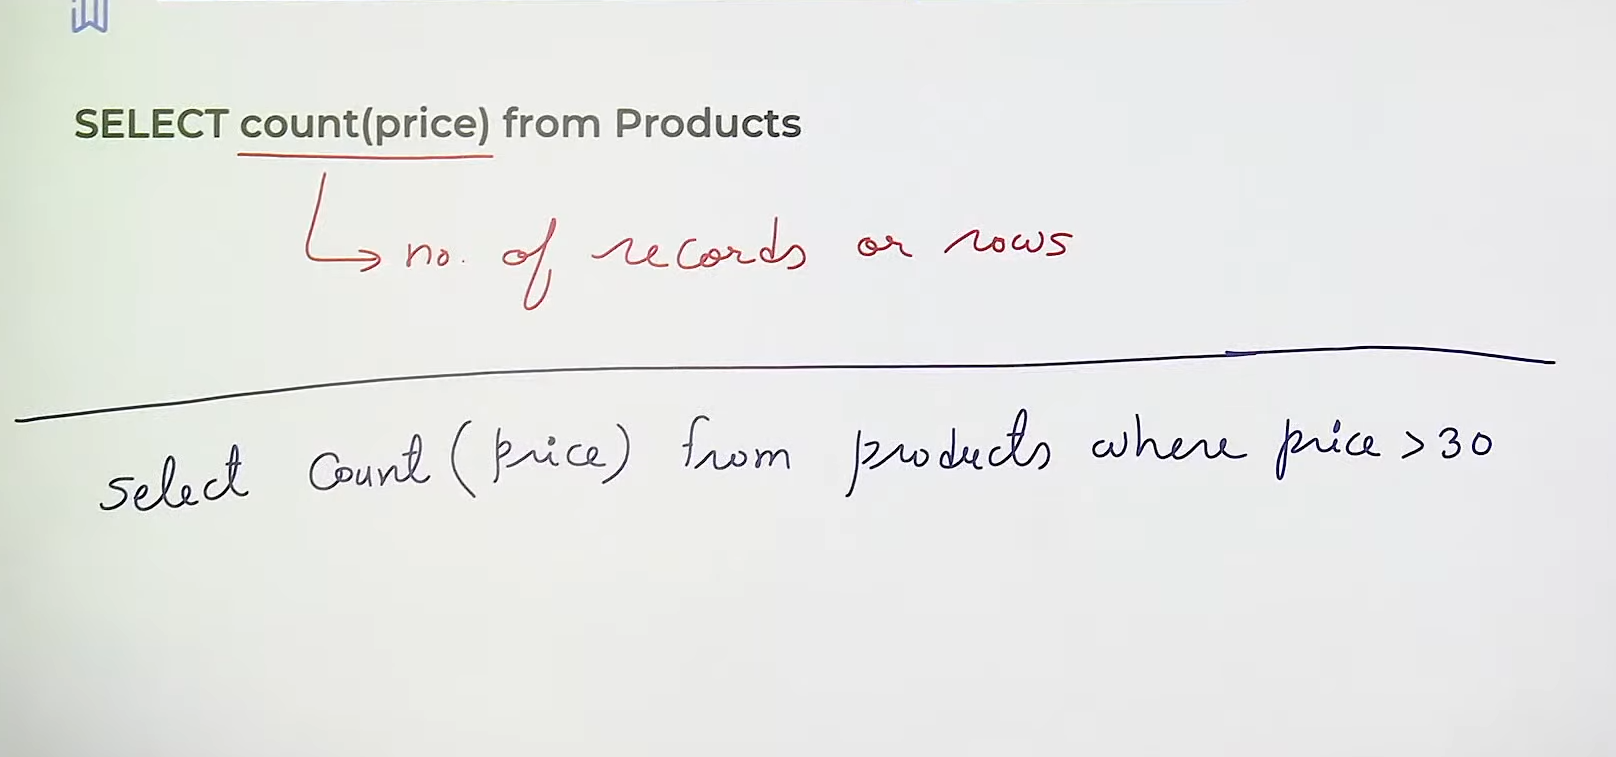 SELECT count(price) from Products
no. of records or rows
select Count (price) from products where price > 30